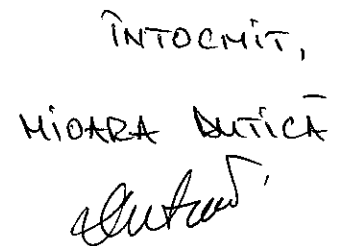 ÎNTOCMIT,
MIOARA DUTICĂ